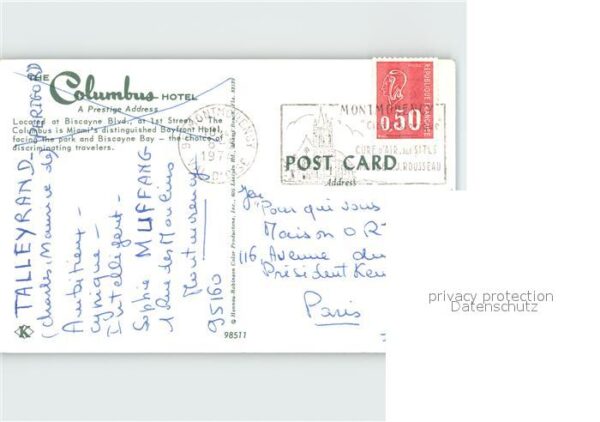 THE
Columbus HOTEL
A Prestige Address
Located at Biscayne Blvd., at 1st Street - The
Columbus is Miami's distinguished Bayfront Hotel,
facing the park and Biscayne Bay - the choice of
discriminating travelers.
TALLEYRAND-PERIGORD
(Charles, Maurice de)
Ambitieux -
Cynique -
Intelligent -
Sophie MUFFANG
1 Rue des Moulins
Montmorency
95160
98511
K
MONTMORENCY
CURE D'AIR, SITES
J.J. ROUSSEAU
REPUBLIQUE FRANÇAISE
0,50
POST CARD
Address
"Pour qui vous
Maison OR
116, Avenue du
Président Ken
Paris
privacy protection
Datenschutz